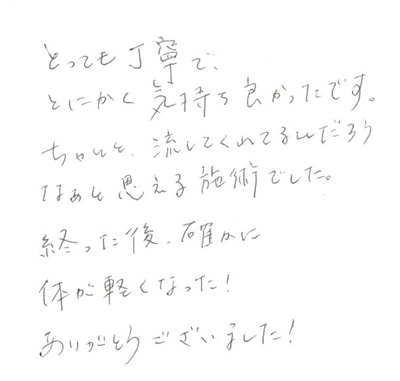 とっても丁寧で、
とにかく気持ち良かったです。
ちゃんと、流してくれてるんだろう
なぁと思える施術でした。
終った後、確かに
体が軽くなった!
ありがとうございました!